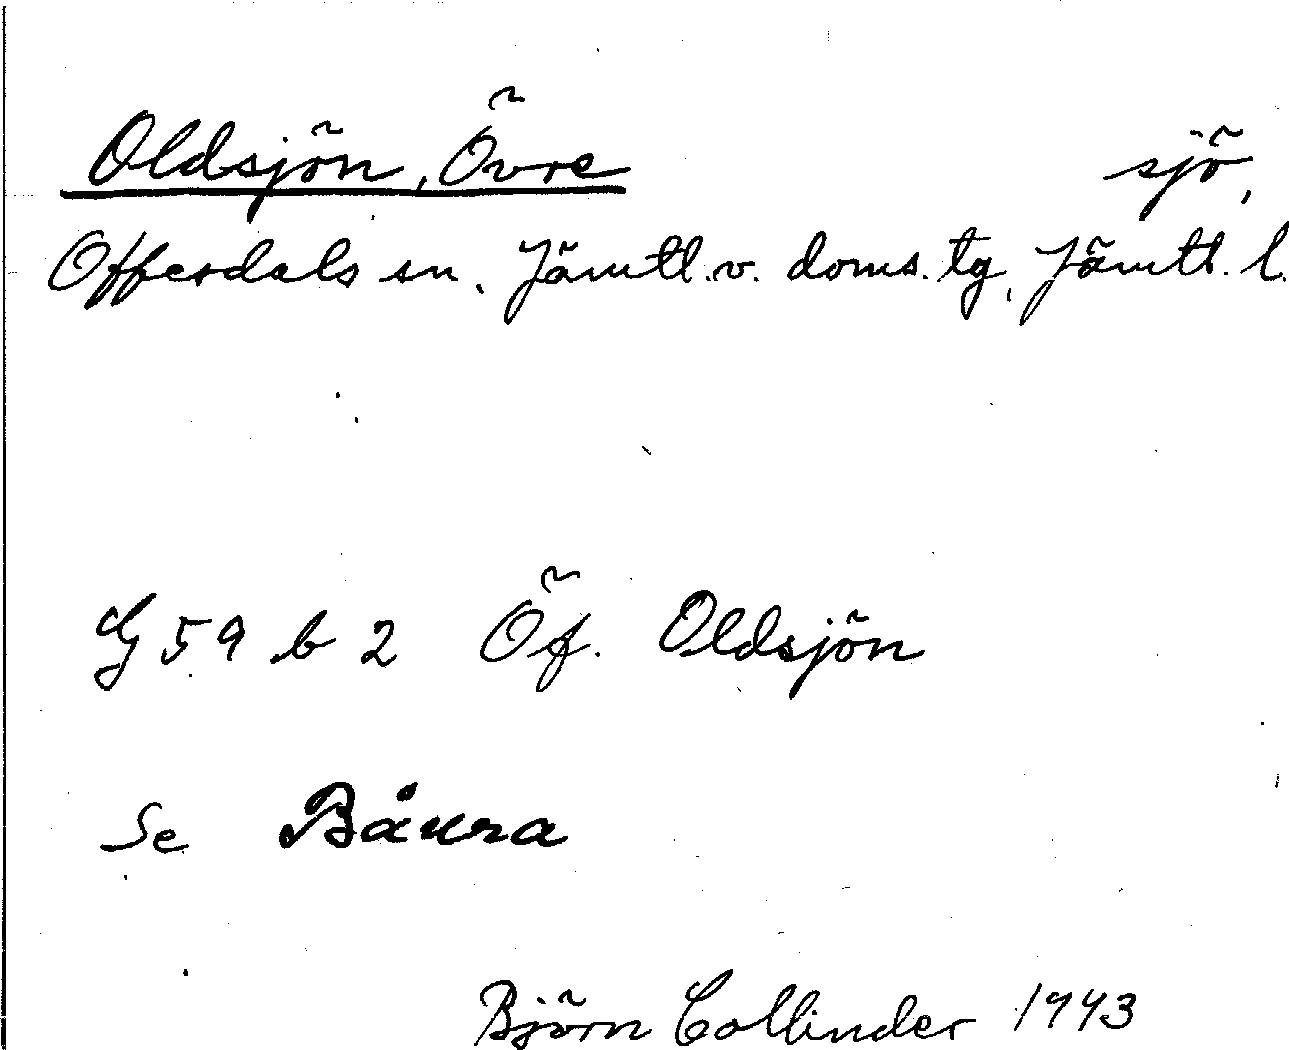 Oldsjön, Övre sjö,
Offerdals sn. Jämtl. v. doms. tg, Jämtl. l.
G 59 b 2 Öf. Oldsjön
Se
Björn Collinder 1943